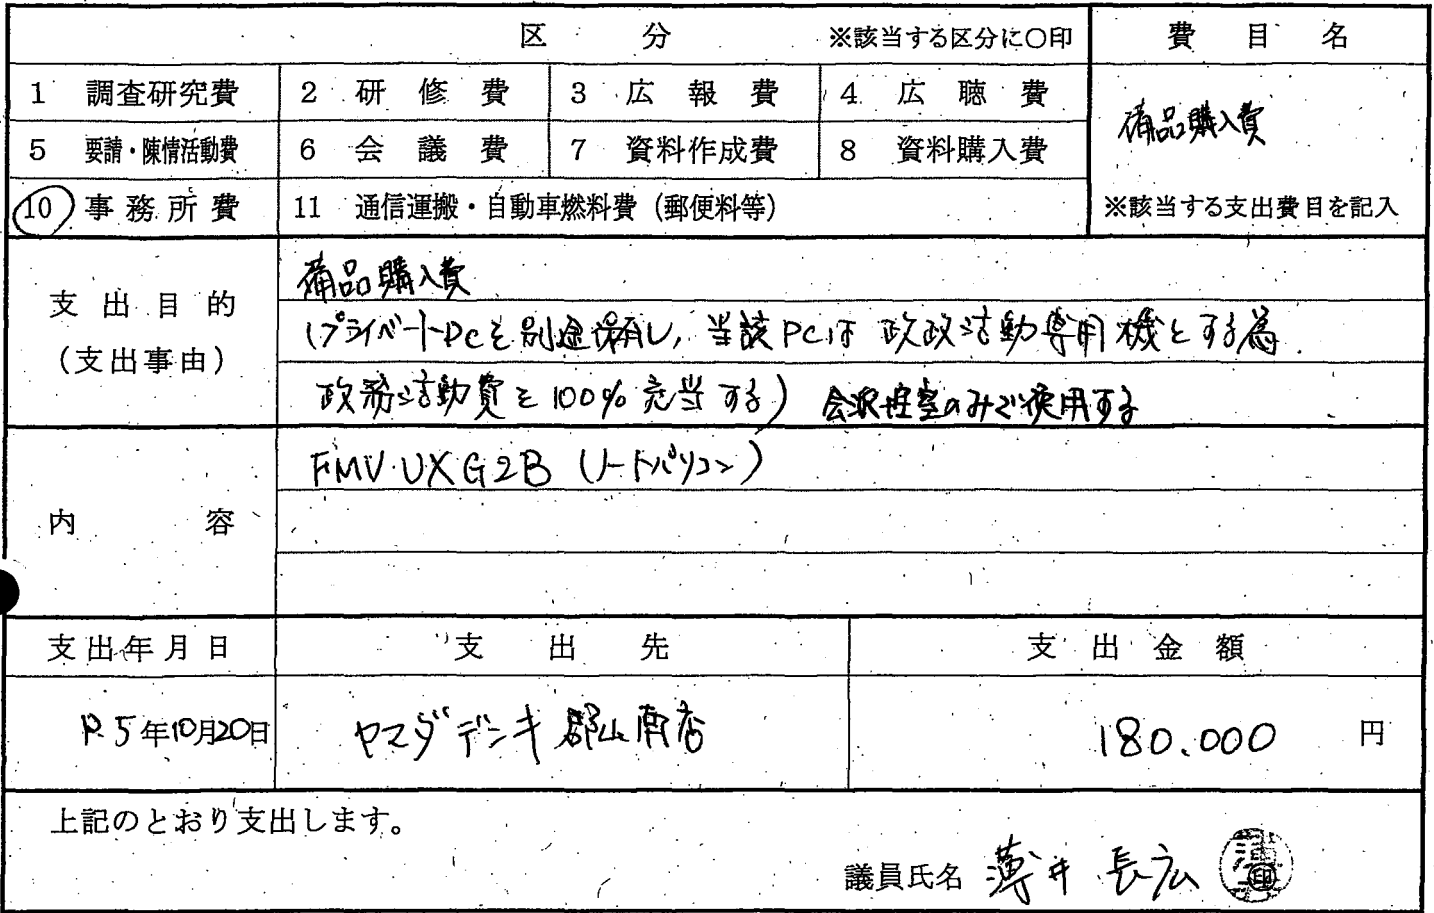 区 分 ※該当する区分に○印 費目名
1 調査研究費 2 研修費 3 広報費 4 広聴費
備品購入費
5 要請・陳情活動費 6 会議費 7 資料作成費 8 資料購入費
10 事務所費 11 通信運搬・自動車燃料費(郵便料等) ※該当する支出費目を記入
備品購入費
支出目的
(プライベートPCを別途保有し、当該PCは政政活動専用機とする為
(支出事由)
政務活動費を100%充当する) 会派控室のみで使用する
FMV UXG2B (ノートパソコン)
内容
支出年月日 支出先 支出金額
R.5年10月20日 ヤマダデンキ 郡山南店 180,000 円
上記のとおり支出します。
議員氏名 薄井 長広 印